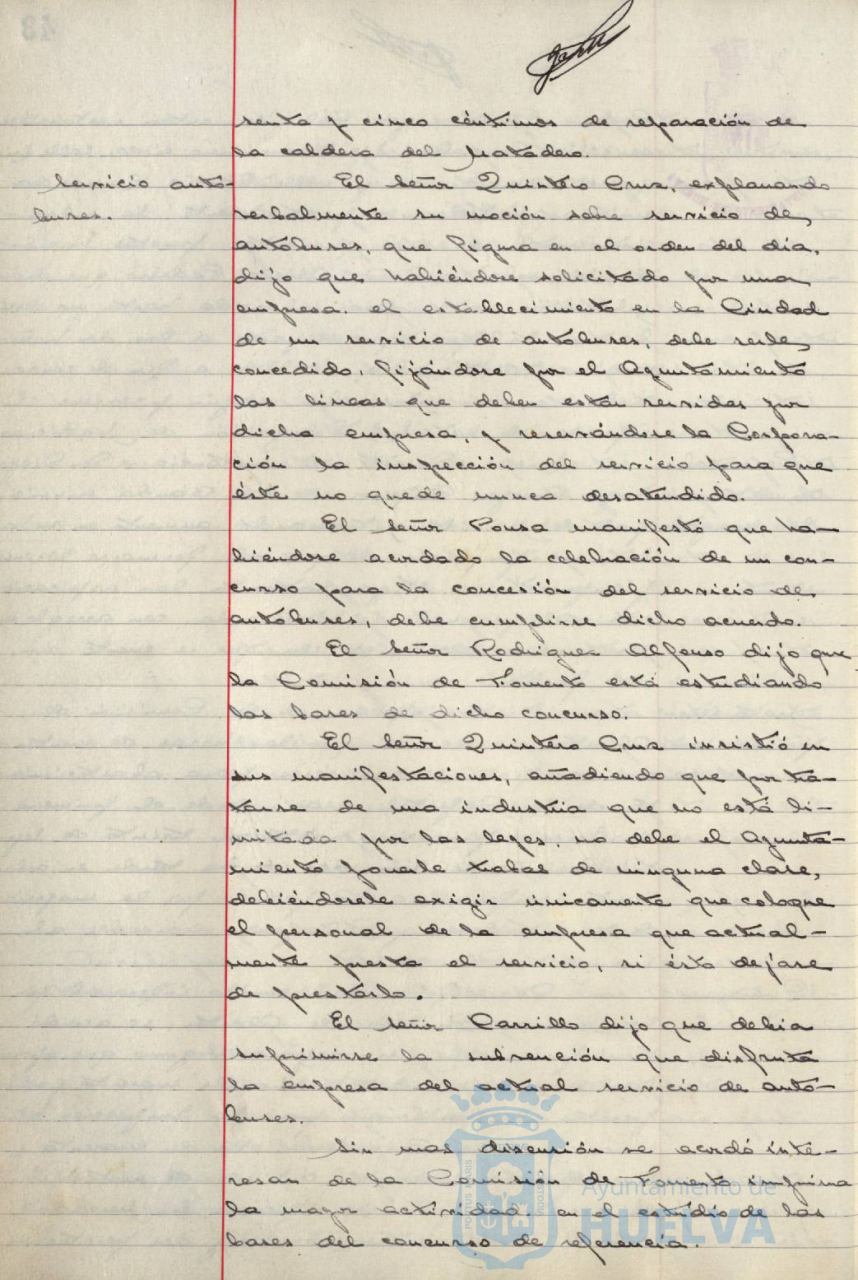 senta y cinco céntimos de reparación de
la caldera del Matadero.
Servicio autó-
buses.
El Señor Quintero Cruz, explanando
verbalmente su moción sobre servicio de
autobuses, que figura en el orden del día,
dijo que habiéndose solicitado por una
empresa el establecimiento en la Ciudad
de un servicio de autobuses, debe serle
concedido, fijándose por el Ayuntamiento
las lineas que deben estar servidas por
dicha empresa, y reservándose la Corpora-
ción la inspección del servicio para que
éste no quede nunca desatendido.
El Señor Ponsa manifestó que ha-
biéndose acordado la celebración de un con-
curso para la concesión del servicio de
autobuses, debe cumplirse dicho acuerdo.
El Señor Rodriguez Alfonso dijo que
la Comisión de Fomento está estudiando
las bases de dicho concurso.
El Señor Quintero Cruz insistió en
sus manifestaciones, añadiendo que por tra-
tarse de una industria que no está li-
mitada por las leyes, no debe el Ayunta-
miento ponerle trabas de ninguna clase,
debiéndosele exigir únicamente que coloque
el personal de la empresa que actual-
mente presta el servicio, si ésta dejase
de prestarlo.
El Señor Carrillo dijo que debia
suprimirse la subvención que disfruta
la empresa del actual servicio de autó-
buses.
Sin mas discusión se acordó inte-
resar de la Comisión de Fomento imprima
la mayor actividad en el estudio de las
bases del concurso de referencia.
Ayuntamiento de
HUELVA